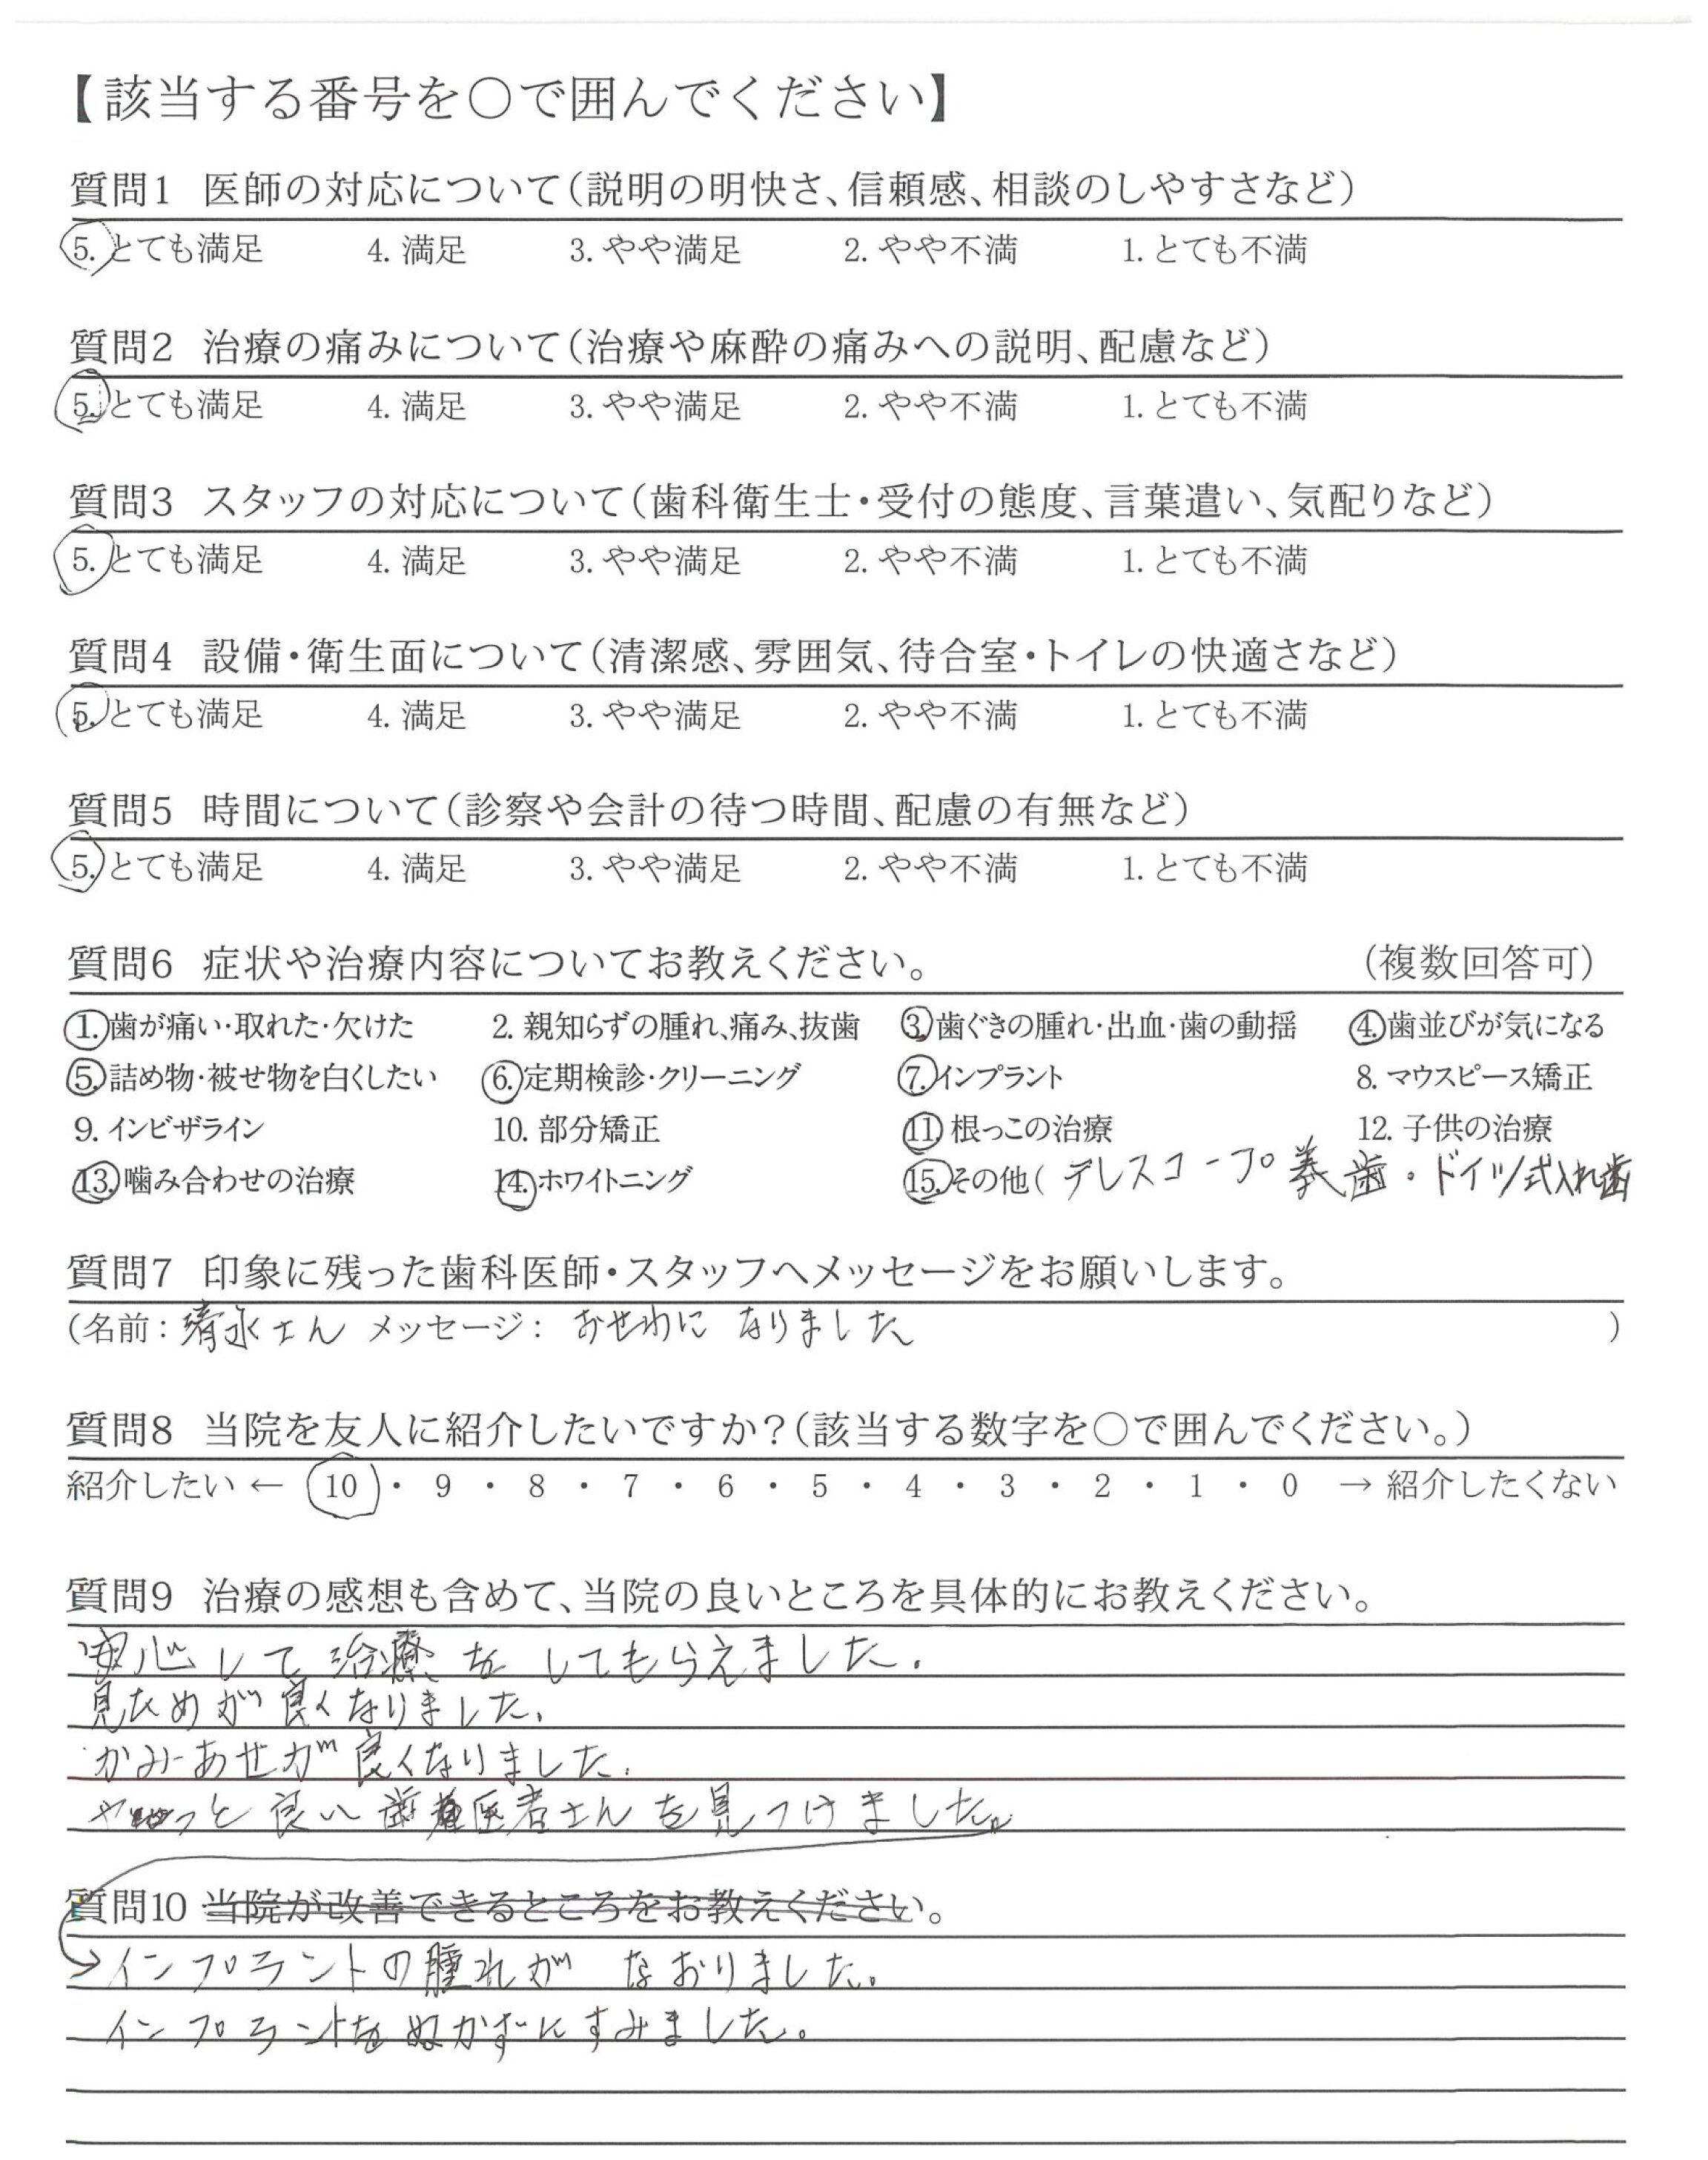 【該当する番号を○で囲んでください】
質問1 医師の対応について(説明の明快さ、信頼感、相談のしやすさなど)
5. とても満足 4. 満足 3. やや満足 2. やや不満 1. とても不満
質問2 治療の痛みについて(治療や麻酔の痛みへの説明、配慮など)
5. とても満足 4. 満足 3. やや満足 2. やや不満 1. とても不満
質問3 スタッフの対応について(歯科衛生士・受付の態度、言葉遣い、気配りなど)
5. とても満足 4. 満足 3. やや満足 2. やや不満 1. とても不満
質問4 設備・衛生面について(清潔感、雰囲気、待合室・トイレの快適さなど)
5. とても満足 4. 満足 3. やや満足 2. やや不満 1. とても不満
質問5 時間について(診察や会計の待つ時間、配慮の有無など)
5. とても満足 4. 満足 3. やや満足 2. やや不満 1. とても不満
質問6 症状や治療内容についてお教えください。 (複数回答可)
1. 歯が痛い・取れた・欠けた 2. 親知らずの腫れ、痛み、抜歯 3. 歯ぐきの腫れ・出血・歯の動揺 4. 歯並びが気になる
5. 詰め物・被せ物を白くしたい 6. 定期検診・クリーニング 7. インプラント 8. マウスピース矯正
9. インビザライン 10. 部分矯正 11. 根っこの治療 12. 子供の治療
13. 噛み合わせの治療 14. ホワイトニング 15. その他( テレスコープ義歯・ドイツ式入れ歯
質問7 印象に残った歯科医師・スタッフへメッセージをお願いします。
(名前: 清水さん メッセージ: おせわになりました )
質問8 当院を友人に紹介したいですか?(該当する数字を○で囲んでください。)
紹介したい ← 10 ・ 9 ・ 8 ・ 7 ・ 6 ・ 5 ・ 4 ・ 3 ・ 2 ・ 1 ・ 0 → 紹介したくない
質問9 治療の感想も含めて、当院の良いところを具体的にお教えください。
安心して治療をしてもらえました。
見ためが良くなりました。
かみあせが良くなりました。
やっと良い歯医者さんを見つけました。
質問10 当院が改善できるところをお教えください。
→インプラントの腫れがなおりました。
インプラントをぬかずにすみました。